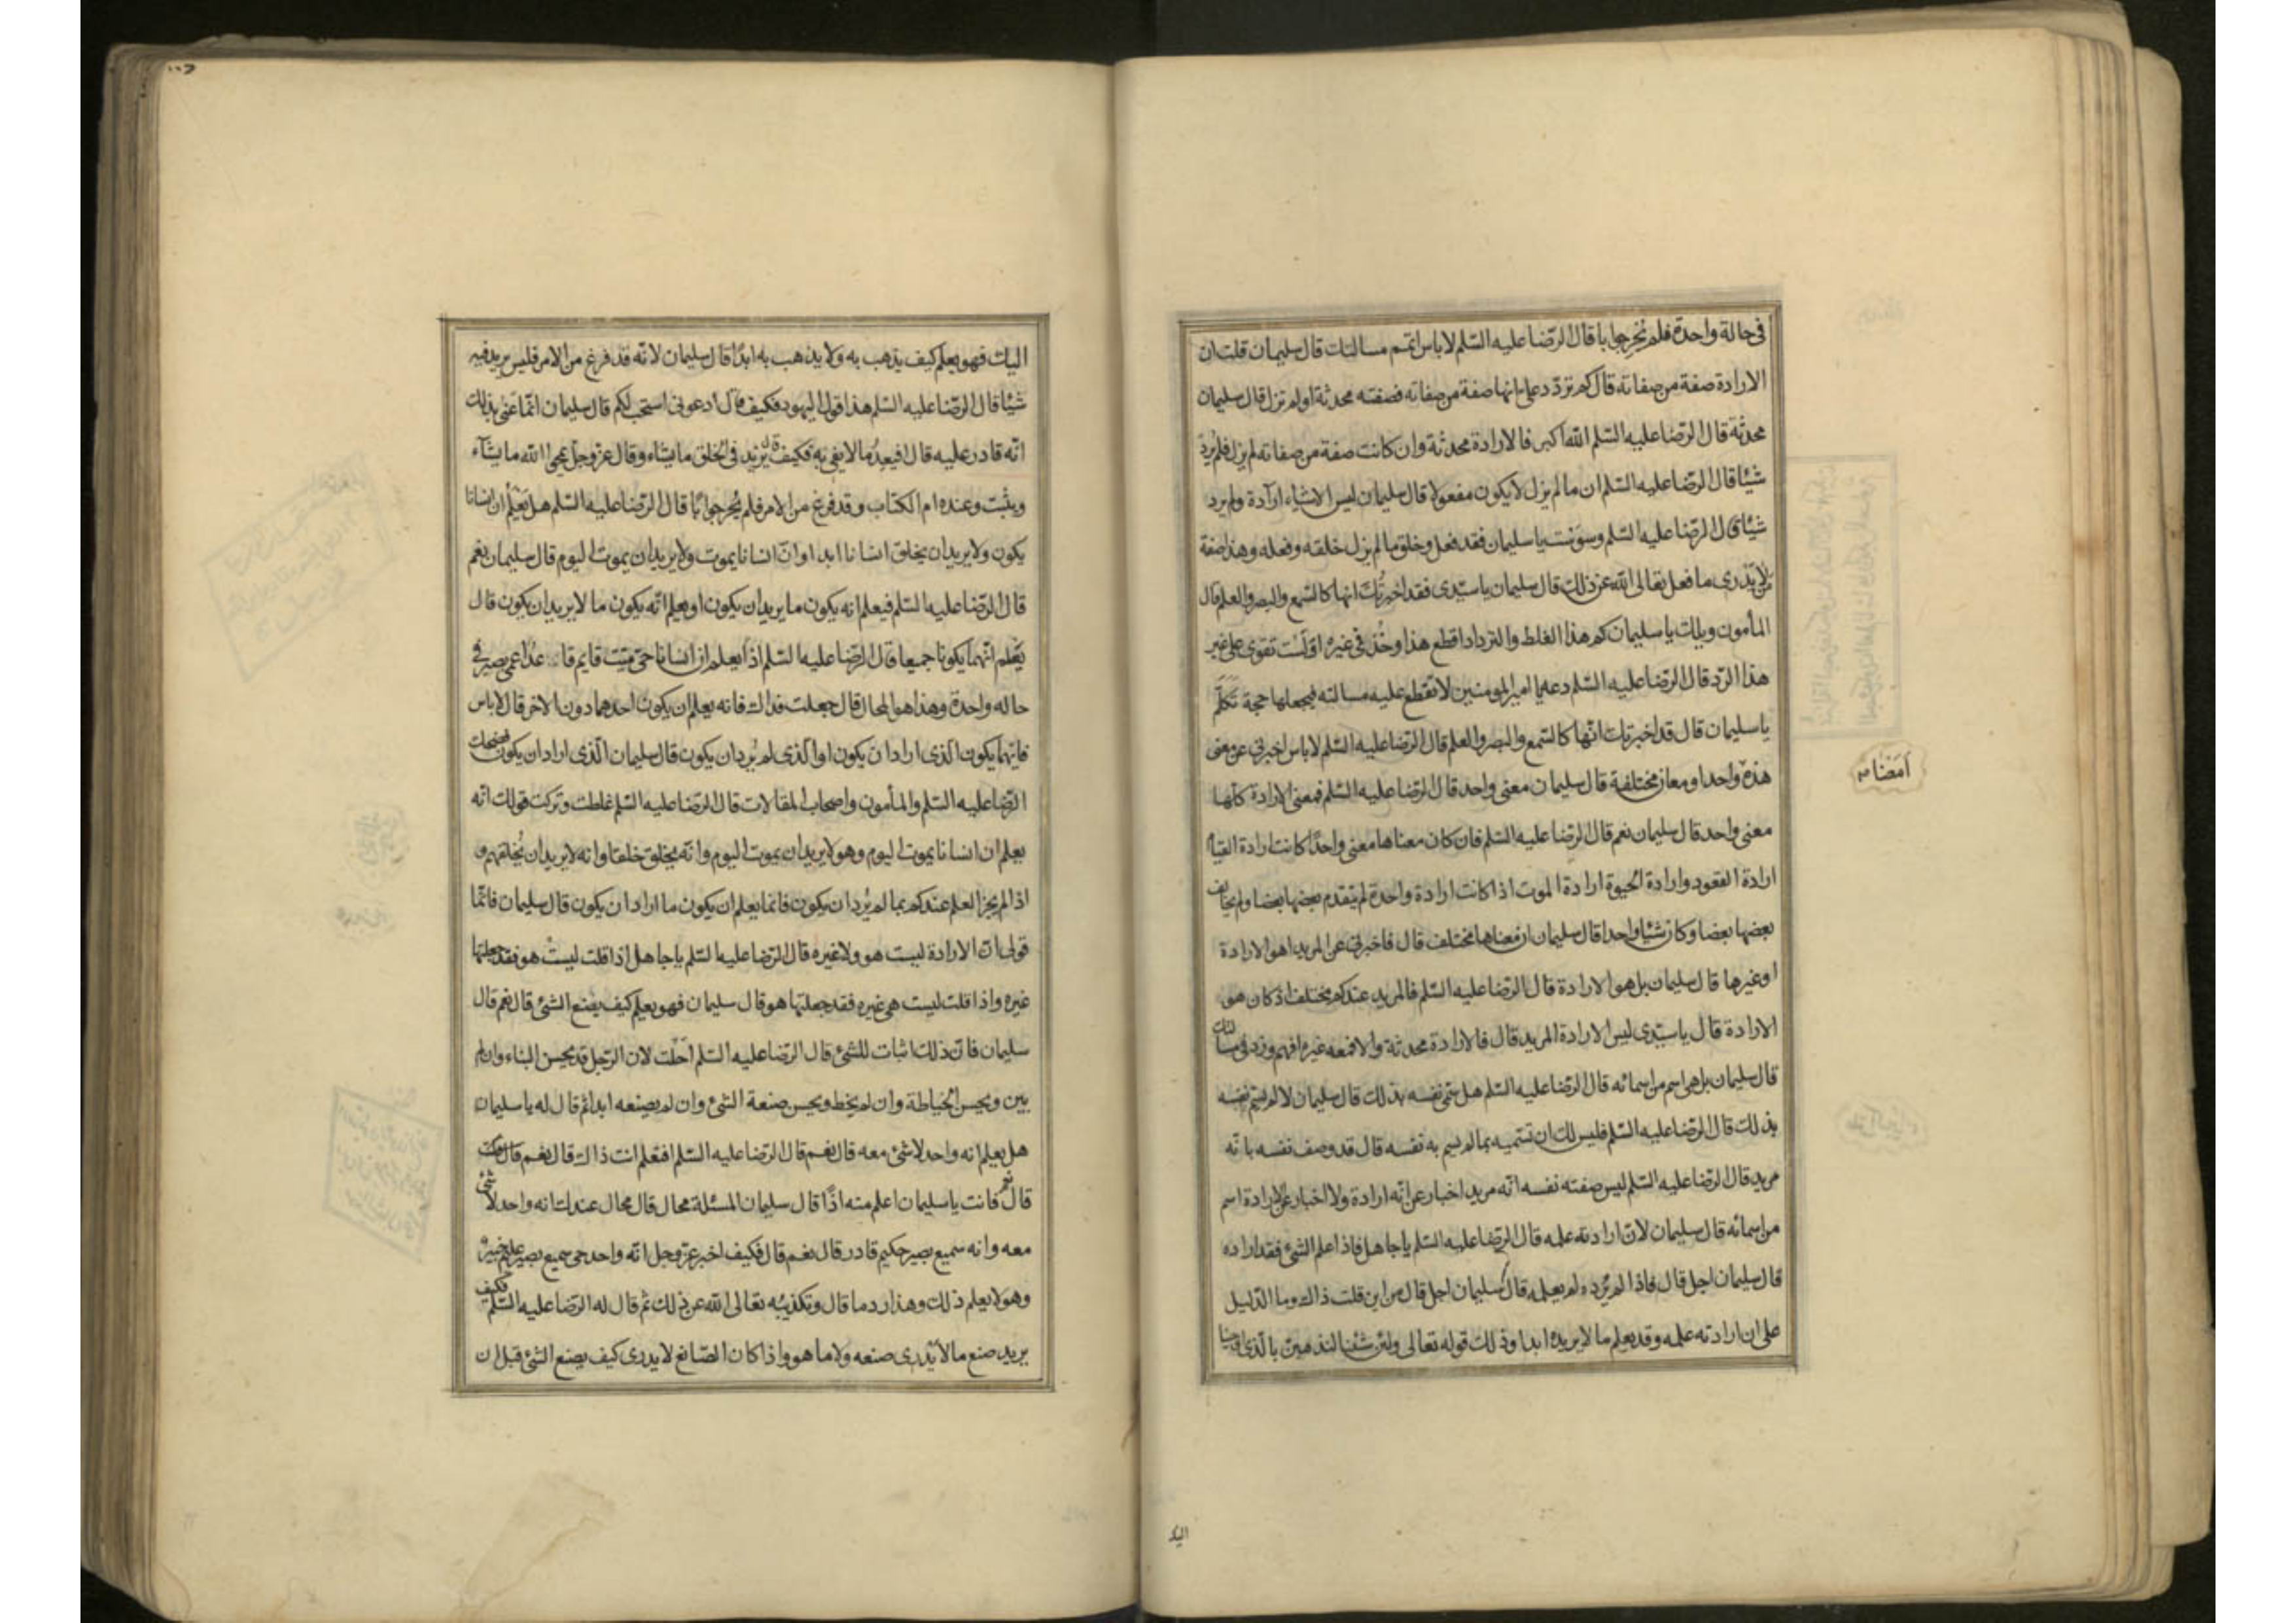 في حالة واحدة فلم يُحِر جوابا قال الرّضا عليه السّلم لا باس اتمم مسالتك قال سليمان قلت ان
الارادة صفة من صفاته قال كم تردّد علىّ انها صفة من صفاته فصفته محدثة او لم تزل قال سليمان
محدثة قال الرّضا عليه السّلم الله اكبر فالارادة محدثة وان كانت صفة من صفاته لم يزل فلم يُرد
شيئا قال الرّضا عليه السّلم ان ما لم يزل لا يكون مفعولا قال سليمان ليس الاشياء ارادة ولم يرد
شيئا قال الرّضا عليه السّلم وسوَست يا سليمان فقد فعل وخلق ما لم يزل خلقه وفعله وهذا صفة
من لا يَدرى ما فعل تعالى الله عن ذلك قال سليمان يا سيّدى فقد اخبرتُك انها كالسّمع والبصر والعلم قال
المأمون ويلك يا سليمان كم هذا الغلط والترداد اقطع هذا وخُذ فى غيره اذ لَسْت تقوى على غير
هذا الرّد قال الرّضا عليه السّلم دعه يا امير المومنين لا تقطع عليه مسالته فيجعلها حجة تَكَلَّم
يا سليمان قال قد اخبرتك انّها كالسّمع والبصر والعلم قال الرّضا عليه السّلم لا باس اخبرنى عن معنى
هذه واحد او معان مختلفة قال سليمان معنى واحد قال الرّضا عليه السّلم فمعنى الارادة كلّها
معنى واحد قال سليمان نعم قال الرّضا عليه السّلم فان كان معناها معنى واحدًا كانت ارادة القيام
ارادة القعود وارادة الحيوة ارادة الموت اذا كانت ارادة واحدة لم يتقدم بعضها بعضا ولم يخالف
بعضها بعضا وكان شيئا واحدا قال سليمان ان معناها مختلف قال فاخبرنى عن المريد اهو الارادة
او غيرها قال سليمان بل هو الارادة قال الرّضا عليه السّلم فالمريد عندكم مختلف اذ كان هو
الارادة قال يا سيّدى ليس الارادة المريد قال فالارادة محدثة والا فمعه غيره افهم وزد فى مسالتك
قال سليمان بل هى اسم من اسمائه قال الرّضا عليه السّلم هل سمّى نفسه بذلك قال سليمان لا لم يسم نفسه
بذلك قال الرّضا عليه السّلم فليس لك ان تسّميه بما لم يسم به نفسه قال قد وصف نفسه بانّه
مريد قال الرّضا عليه السّلم ليس صفته نفسه انّه مريد اخبار عن انّه ارادة ولا اخبار عن الارادة اسم
من اسمائه قال سليمان لانّ ارادته علمه قال الرّضا عليه السّلم يا جاهل فاذا علم الشىء فقد اراده
قال سليمان اجل قال فاذا لم يُرده لم يعلمه قال سليمان اجل قال من اين قلت ذاك وما الدّليل
على ان ارادته علمه وقد يعلم ما لا يريده ابدا وذلك قوله تعالى ولئن شئنا لنذهبنّ بالّذى اوحينا
امضاه
اليك
اليك فهو يعلم كيف يذهب به ولا يذهب به ابدًا قال سليمان لانّه قد فرغ من الامر فليس يريد فيه
شيئا قال الرّضا عليه السّلم هذا قول اليهود فكيف قال ادعونى استجب لكم قال سليمان انّما عَنى بذلك
انّه قادر عليه قال افيعِدُ ما لا يفى به فكيف قال يزيد فى الخلق ما يشاء وقال عزّ وجلّ يمحوا الله ما يشآء
ويثبت وعنده ام الكتاب وقد فرغ من الامر فلم يُحر جوابًا قال الرّضا عليه السّلم هل يَعلم ان انسانا
يكون ولا يريد ان يخلق انسانا ابدا وانّ انسانا يموت ولا يريد ان يموت اليوم قال سليمان نعم
قال الرّضا عليه السّلم فيعلم انه يكون ما يريد ان يكون او يعلم انّه يكون ما لا يريد ان يكون قال
يَعلم انّهما يكونا جميعا قال الرّضا عليه السّلم اذًا يعلم ان انسانا حىّ ميّت قايم قاعد اعمى بصير فى
حاله واحدة وهذا هو المحال قال جعلت فداك فانه يعلم ان يكون احدهما دون الاخر قال لا باس
فايّهما يكون الّذى اراد ان يكون او الّذى لم يُرد ان يكون قال سليمان الّذى اراد ان يكون فضحك
الرّضا عليه السّلم والمأمون واصحاب المقالات قال الرّضا عليه السّلم غلطت وتركت قولك انّه
يعلم ان انسانا يموت اليوم وهو لا يريد ان يموت اليوم وانّه يخلق خلقا وانه لا يريد ان يُخلقهم و
اذا لم يجز العلم عندكم بما لم يُرد ان يكون فانما يعلم ان يكون ما اراد ان يكون قال سليمان فانّما
قولى انّ الارادة ليست هو ولا غيره قال الرّضا عليه السّلم يا جاهل اذا قلت ليست هو فقد جعلتها
غيره واذا قلت ليست هى غيره فقد جعلتها هو قال سليمان فهو يعلم كيف يصنع الشىء قال نعم قال
سليمان فانّ ذلك اثبات للشىء قال الرّضا عليه السّلم اَحَلْت لان الرّجل قد يحسن البناء وان لم
يبن ويحسن الخياطة وان لم يخط ويحسن صنعة الشىء وان لم يصنعه ابدا ثم قال له يا سليمان
هل يعلم انه واحد لا شىء معه قال نعم قال الرّضا عليه السّلم افتعلم انت ذاك قال نعم
قال فانت يا سليمان اعلم منه اذًا قال سليمان المسئلة محال قال محال عندك انه واحد لا شىء
معه وانه سميع بصير حكيم قادر قال نعم قال فكيف اخبر عزّ وجل انّه واحد حى سميع بصير عليم خبير
وهو لا يعلم ذلك وهذا رد ما قال وتكذيبُه تعالى الله عن ذلك ثم قال له الرّضا عليه السّلم فكيف
يريد صنع ما لا يَدرى صنعه ولا ما هو واذا كان الصّانع لا يدرى كيف يصنع الشىء قبل ان